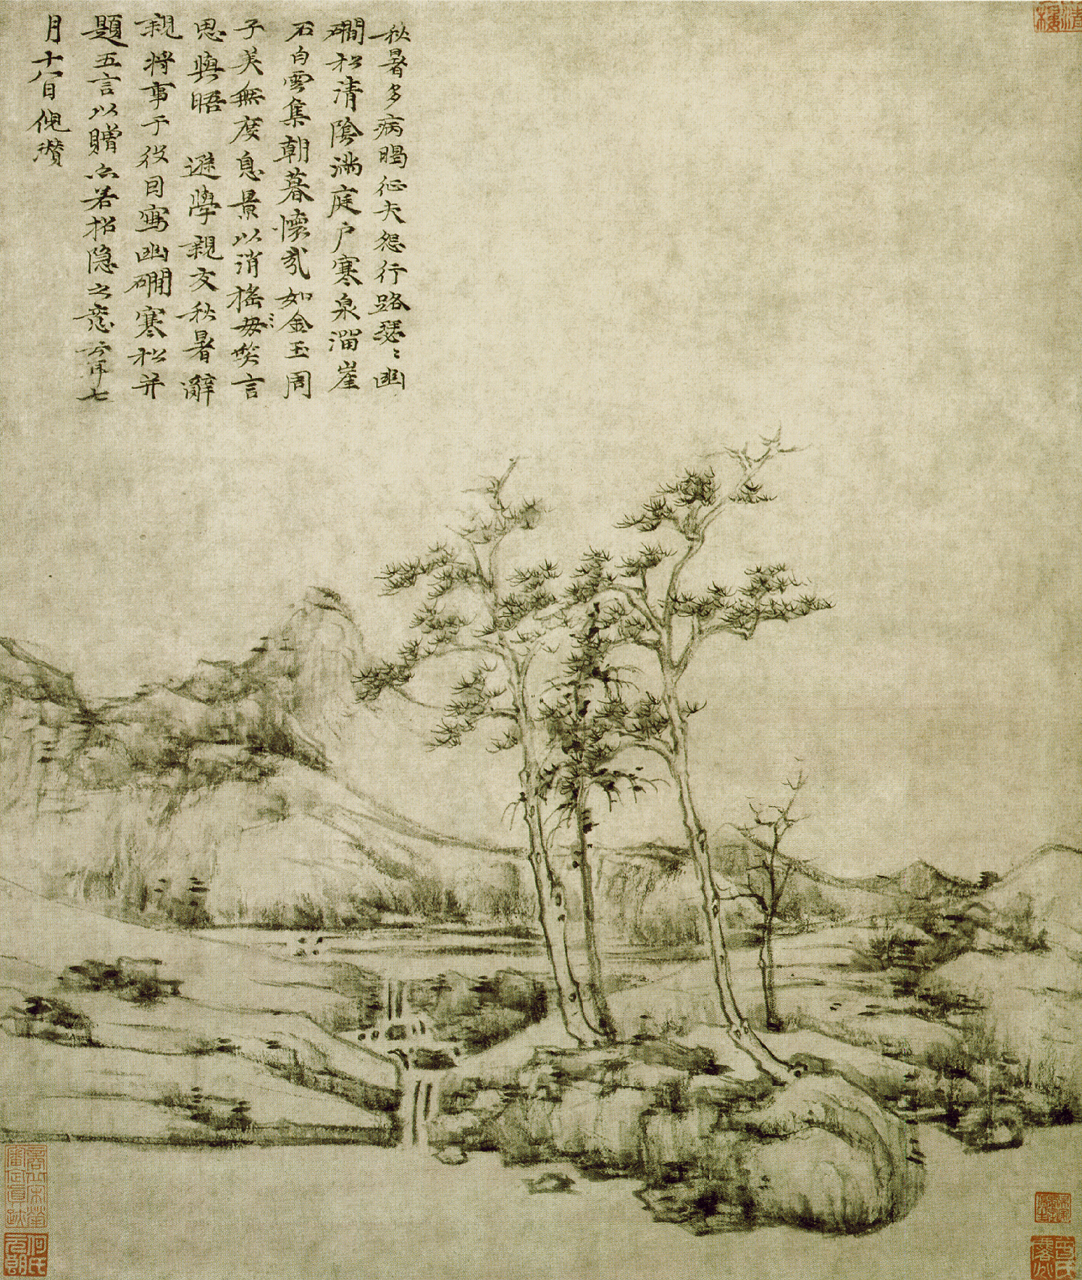 秋暑多病暍征夫怨行路瑟〻幽
磵松清陰滿庭戶寒泉溜崖
石白雲集朝暮懷哉如金玉周
子美無度息景以消搖毋笑言
思與晤 遜學親友秋暑辭
親將事于役因寫幽磵寒松并
題五言以贈亦若招隱之意云耳七
月十八日倪瓚
商丘宋犖審定真跡
何氏元朗